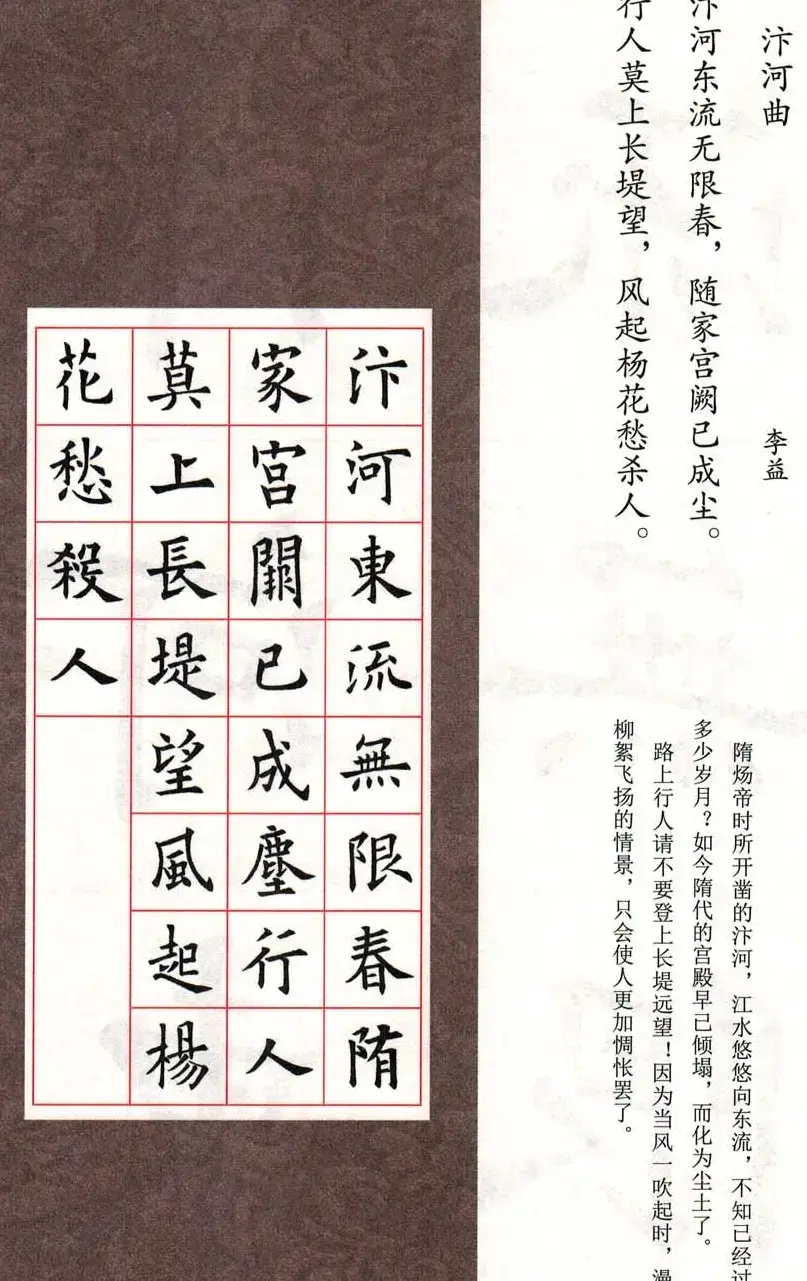 汴河曲
李益
汴河东流无限春，随家宫阙已成尘。
行人莫上长堤望，风起杨花愁杀人。
隋炀帝时所开凿的汴河，江水悠悠向东流，不知已经过
多少岁月？如今隋代的宫殿早已倾塌，而化为尘土了。
路上行人请不要登上长堤远望！因为当风一吹起时，漫
柳絮飞扬的情景，只会使人更加惆怅罢了。
汴河東流無限春陏
家宫闕已成塵行人
莫上長堤望風起楊
花愁殺人